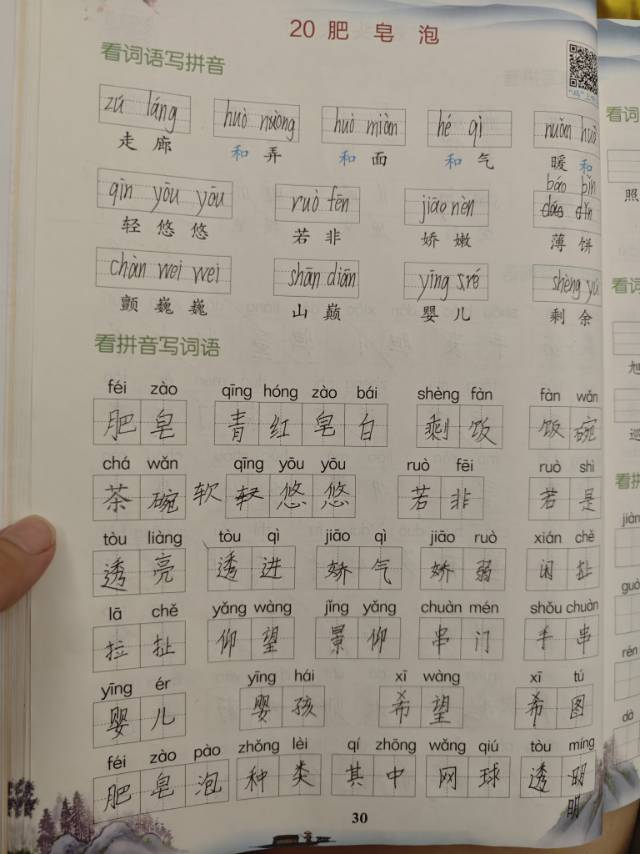 20 肥 皂 泡
看词语写拼音
zú láng huò nòng huò miàn hé qì nuǎn huo
走廊 和弄 和面 和气 暖和
qīn yōu yōu ruò fēn jiāo nèn báo bǐn
轻悠悠 若非 娇嫩 薄饼
chàn wei wei shān diān yīng ré shèng yú
颤巍巍 山巅 婴儿 剩余
看拼音写词语
féi zào qīng hóng zào bái shèng fàn fàn wǎn
肥皂 青红皂白 剩饭 饭碗
chá wǎn qīng yōu yōu ruò fēi ruò shì
茶碗 软 轻悠悠 若非 若是
tòu liàng tòu qì jiāo qì jiāo ruò xián chě
透亮 透进 娇气 娇弱 闲扯
lā chě yǎng wàng jǐng yǎng chuàn mén shǒu chuàn
拉扯 仰望 景仰 串门 手串
yīng ér yīng hái xī wàng xī tú
婴儿 婴孩 希望 希图
féi zào pào zhǒng lèi qí zhōng wǎng qiú tòu míng
肥皂泡 种类 其中 网球 透明
明
30
看词
照
看词
旭
巡
看拼
jiàn
guò
rén
dà